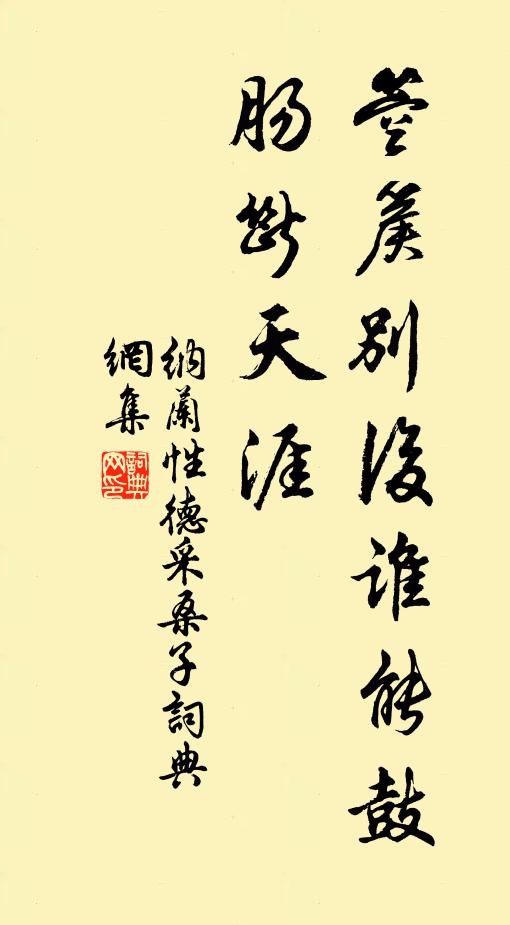 箜篌別後誰能鼓
腸斷天涯
納蘭性德采桑子詞典
網集
詞典
网印